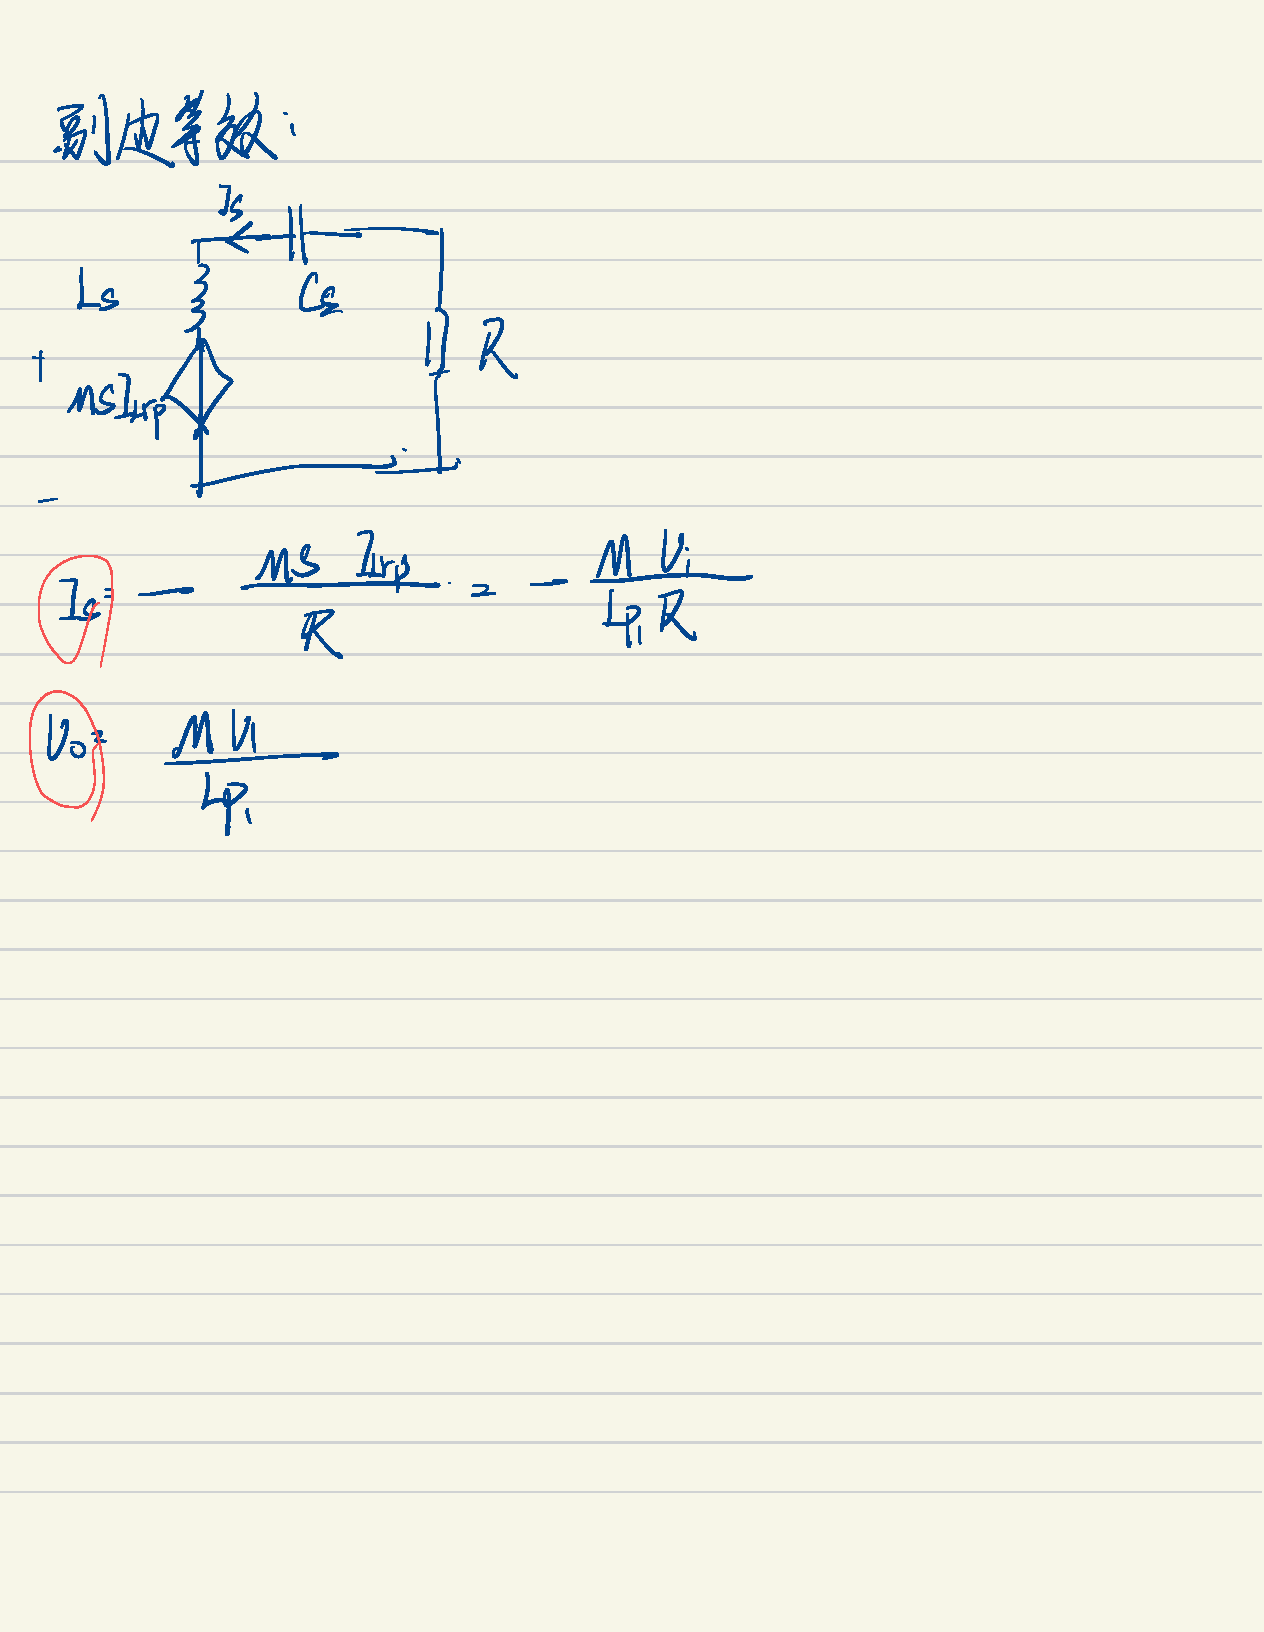 副边等效:
Is
Ls
Cs
+
R
MSILrp
-
Is = - MS ILrp / R = - M Ui / Lp1 R
Uo = M Ui / Lp1